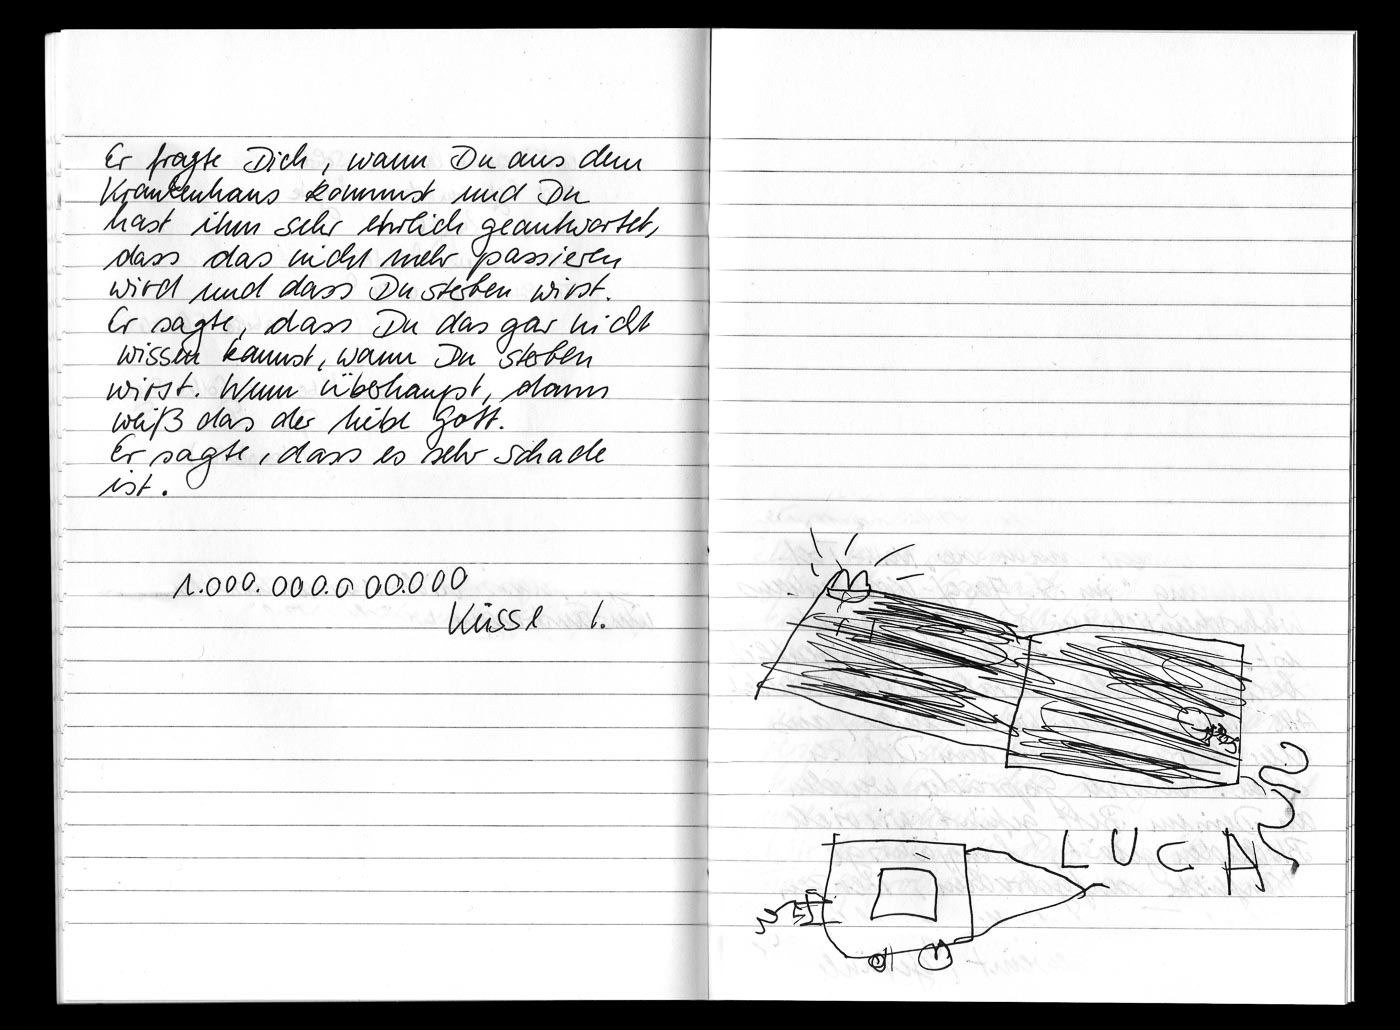 Er fragte Dich, wann Du aus dem
Krankenhaus kommst und Du
hast ihm sehr ehrlich geantwortet,
dass das nicht mehr passieren
wird und dass Du sterben wirst.
Er sagte, dass Du das gar nicht
wissen kannst, wann Du sterben
wirst. Wenn überhaupt, dann
weiß das der liebe Gott.
Er sagte, dass es sehr schade
ist.
1.000.000.000.000
Küsse I.
LUCA